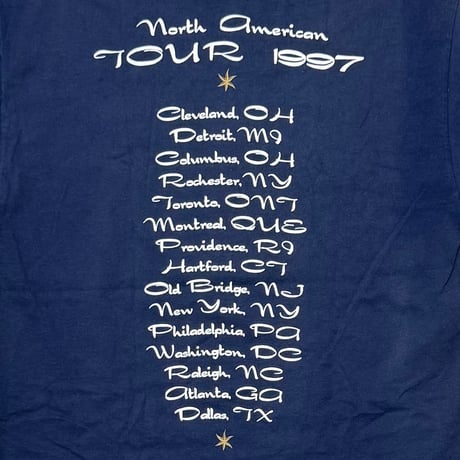 North American
TOUR 1997
Cleveland, OH
Detroit, MI
Columbus, OH
Rochester, NY
Toronto, ONT
Montreal, QUE
Providence, RI
Hartford, CT
Old Bridge, NJ
New York, NY
Philadelphia, PA
Washington, DC
Raleigh, NC
Atlanta, GA
Dallas, TX